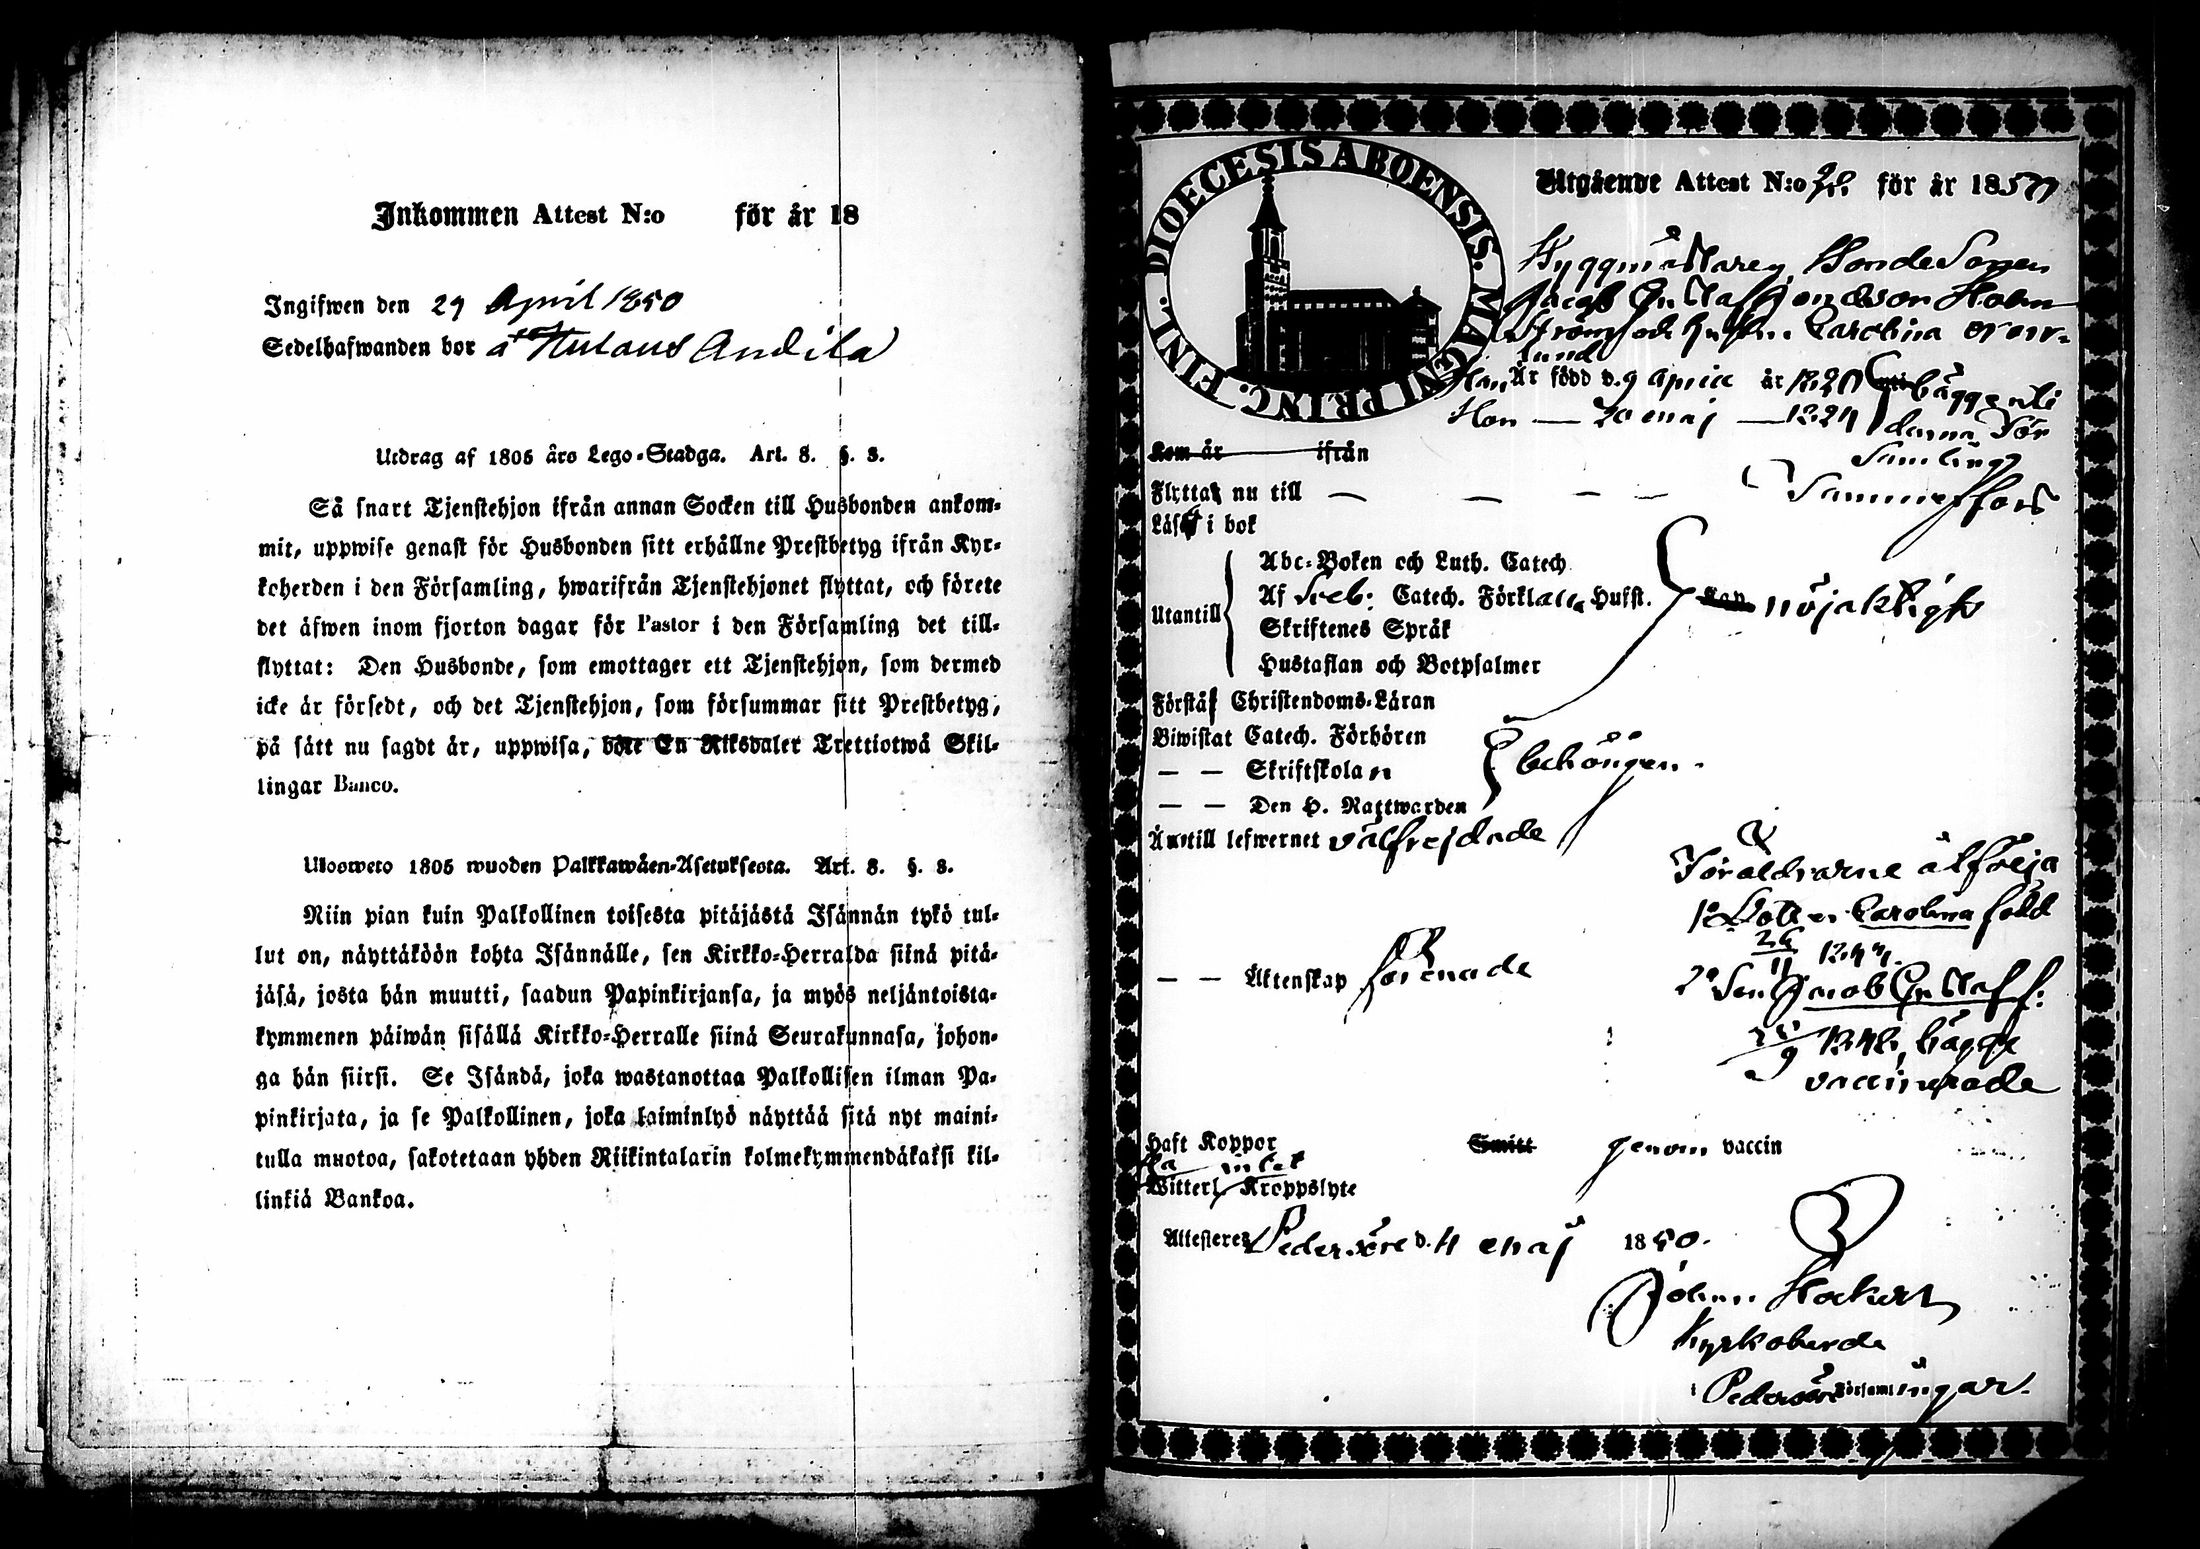 Inkommen Attest N:o för år 18
Ingifwen den 29 April 1850
Sedelhafwanden bor å
Utdrag af 1805 års Lego-Stadga. Art. 8. §. 3.
Så snart Tjenstehjon ifrån annan Socken till Husbonden ankom-
mit, uppwise genast för Husbonden sitt erhållne Prestbetyg ifrån Kyr-
koherden i den Församling, hwarifrån Tjenstehjonet flyttat, och förete
det äfwen inom fjorton dagar för Pastor i den Församling det till-
flyttat: Den Husbonde, som emottager ett Tjenstehjon, som dermed
icke är försedt, och det Tjenstehjon, som försummar sitt Prestbetyg,
på sätt nu sagdt är, uppwisa, böte En Riksdaler Trettiotwå Skil-
lingar Banco.
Ulosweto 1805 wuoden Palkkawäen-Asetuksesta. Art. 8. §. 3.
Niin pian kuin Palkollinen toisesta pitäjästä Isännän tykö tul-
lut on, näyttäköön kohta Isännälle, sen Kirkko-Herralda siinä pitä-
jäsä, josta hän muutti, saadun Papinkirjansa, ja myös neljäntoista-
kymmenen päiwän sisällä Kirkko-Herralle siinä Seurakunnasa, johon-
ga hän siirsi. Se Isändä, joka wastanottaa Palkollisen ilman Pa-
pinkirjata, ja se Palkollinen, joka laiminlyö näyttää sitä nyt maini-
tulla muotoa, sakotetaan yhden Riikintalarin kolmekymmendäkaksi kil-
linkiä Bankoa.
DIOECESIS ABOENSIS. MAGNI PRINC. FINL.
Utgående Attest N:o för år 1850
Byggmästaren, Bonde Sonen
Jacob Gustaf Holm
Ström och hustru Carolina
lund
Han Är född d. 9 April år 1820 bägge uti
Hon — 20 maj — denna För
samling
Kom år ifrån
Flytta nu till — — — —
Läs i bok
Abc-Boken och Luth. Catech
Utantill Af Sveb: Catech. Förklar. Hufst. nöjaktigt
Skriftenes Språk
Hustaflan och Botpsalmer
Förstå Christendoms-Läran
Biwistat Catech. Förhören
— — Skriftskolan behörigen.
— — Den H. Nattwarden
Är till lefwernet välfrejdade
Föräldrarne åtfölja
1o Dotter Carolina född
— — Äktenskap förenade
2o Son Jacob Gustaf f:
bägge
vaccinerade
Haft Koppor Smitt genom vaccin
Ha intet
Witterl. Kroppslyte
Attesteres Pedersöre d. 4 maj 1850.
Johan Hockert
Kyrkoherde
i Pedersöre Församlingar.